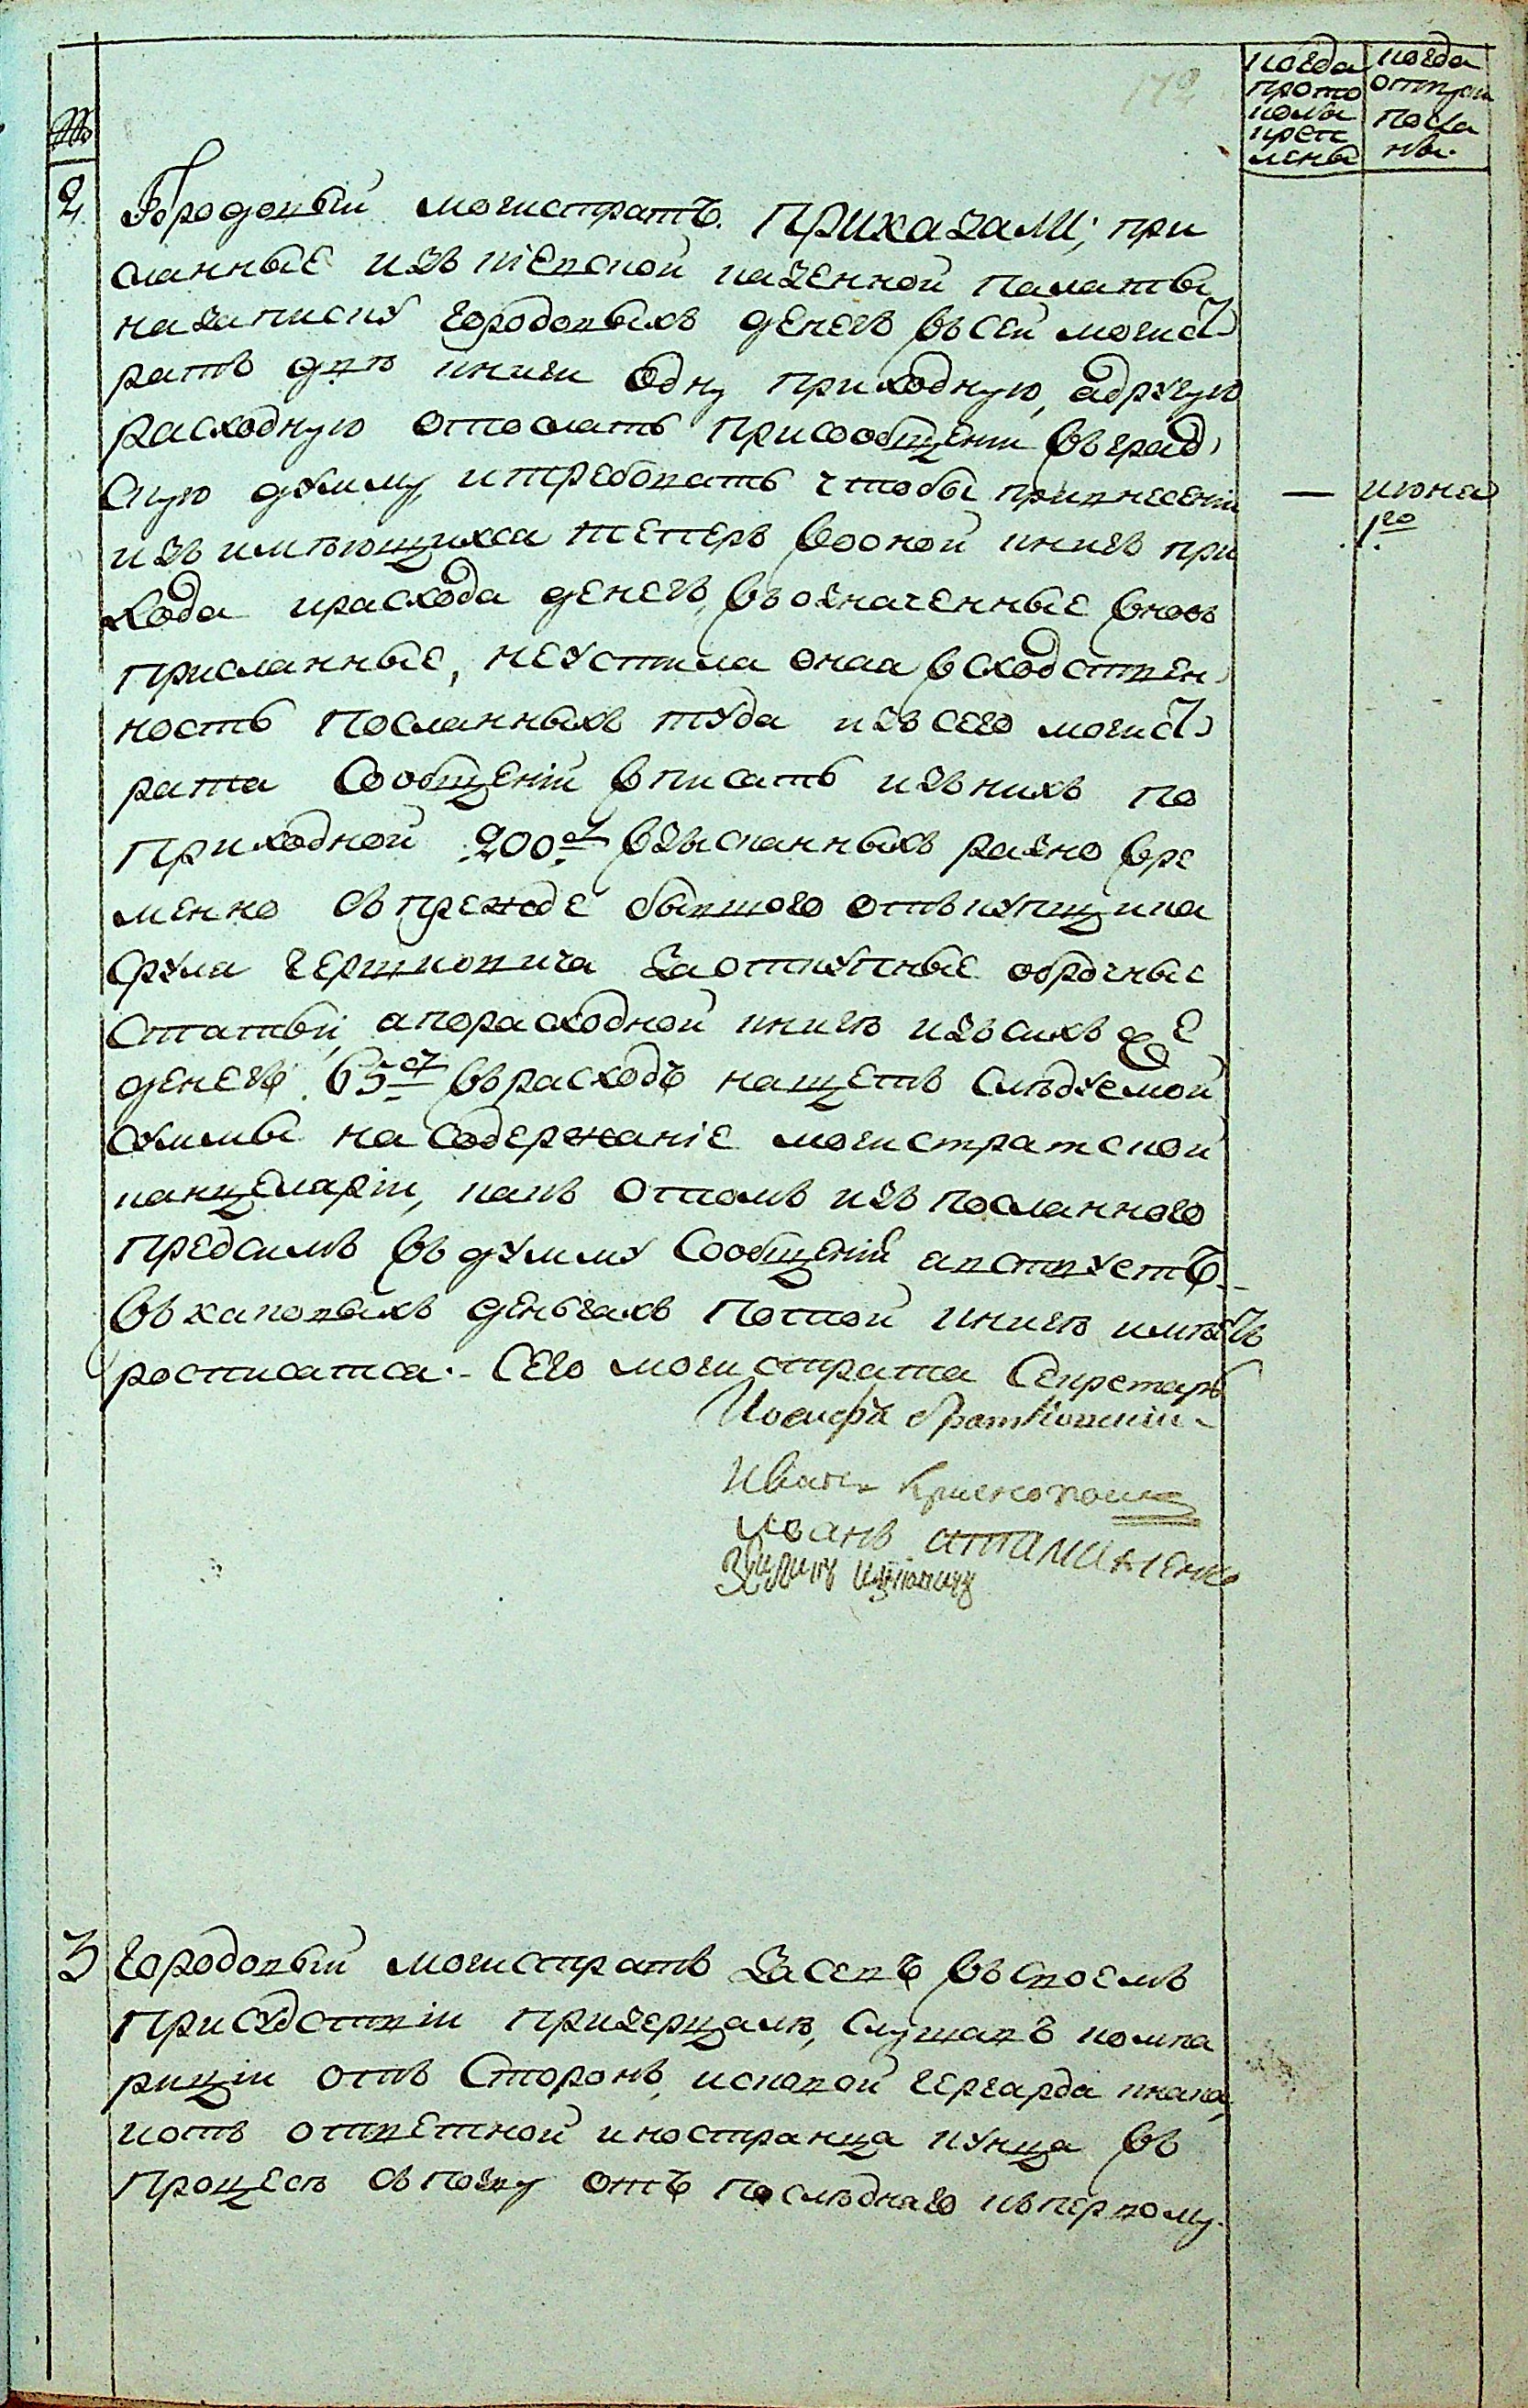 когда
прото
колы
креп
лены
когда
отпра
посла
ны.
№
172
2. Городовый магистратъ. ПРИКАЗАЛИ; при
сланные изъ Киевской казенной палаты
на записку городовыхъ денегъ въ сей магист
ратъ двѣ книги одну приходную, а другую
расходную отослать при сообщении въ град
скую думму, и требовать чтобы при внесеніи
изъ имѣющихся теперь в одной книгѣ при
хода и расхода денегъ, въ означенные вновь
присланные, не упустила оная в сходствен
ность посланныхъ туда изъ сего магист
рата сообщеній вписать изъ нихъ по
приходной 200 р взысканныхъ разно вре
менно съ прежде бывшого откупщика
Срула Гершковича за откупные оброчные
статьи, а по расходной книгѣ изъ сихъ же
денегъ 65 р въ расходъ на щетъ слѣдуемой
суммы на содержаніе магистратской
канцеляріи, какъ о томъ изъ посланного
предсимъ въ думму сообщеній явствуетъ
въ каковыхъ деньгахъ по той книгѣ имѣетъ
росписатся. Сего магистрата Секретарь
Иосифъ Братковский
Иванъ
Иванъ Атаманенко
— июня
1го
3 Городовый магистратъ засевъ въ своемъ
присудствіи при зерцалѣ, слушавъ компа
риціи отъ сторонъ, исковой Гергарда Кнака
котъ ответной иностранца Кунца въ
процесѣ съ позву отъ послѣднаго къ первому.